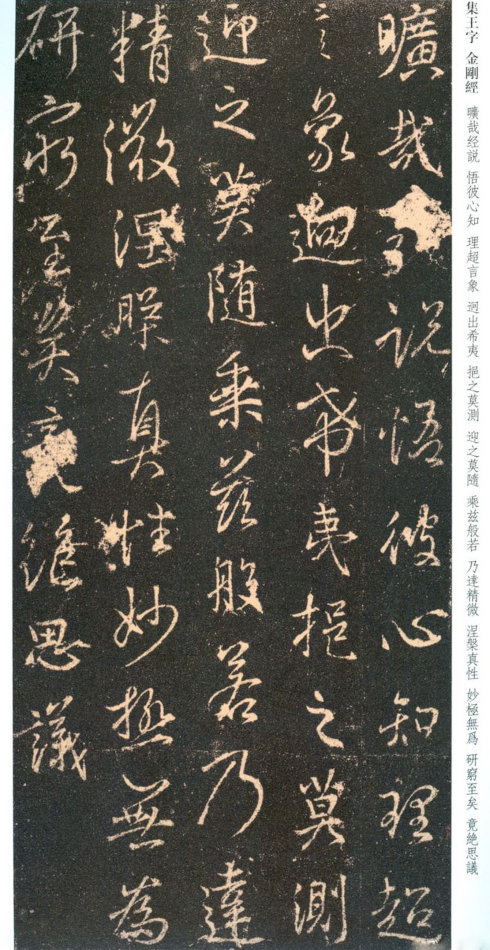 集王字 金剛經 曠哉经説 悟彼心知 理超言象 迥出希夷 挹之莫測 迎之莫隨 乘兹般若 乃達精微 涅槃真性 妙極無爲 研窮至矣 竟絶思議
曠哉説悟彼心知理超
言象迥出希夷挹之莫測
迎之莫随乘兹般若乃達
精微涅槃真性妙極無為
研窮至矣竟絶思議